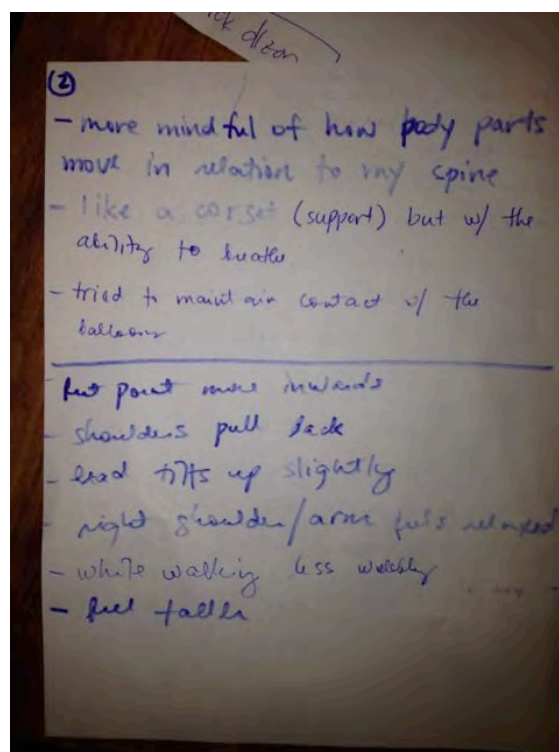 ck dizon
②
- more mindful of how body parts
move in relation to my spine
- like a corset (support) but w/ the
ability to breathe
- tried to maintain contact w/ the
balloons
feet point more inwards
- shoulders pull back
- head tilts up slightly
- right shoulder/arm feels relaxed
- while walking less wobbly
- feel taller